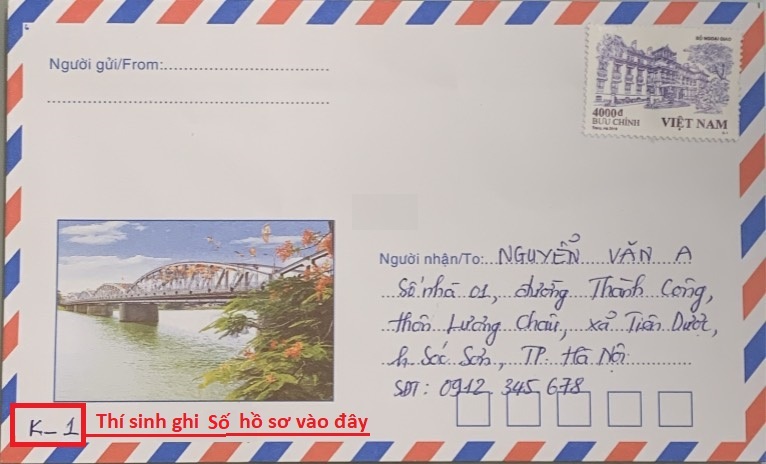 Người gửi/From:
BỘ NGOẠI GIAO
4000đ
BƯU CHÍNH
VIỆT NAM
Người nhận/To: NGUYỄN VĂN A
Số nhà 01, đường Thành Công,
thôn Lương Châu, xã Tiên Dược,
h Sóc Sơn, TP. Hà Nội
SĐT: 0912 345 678
K_1 Thí sinh ghi Số hồ sơ vào đây